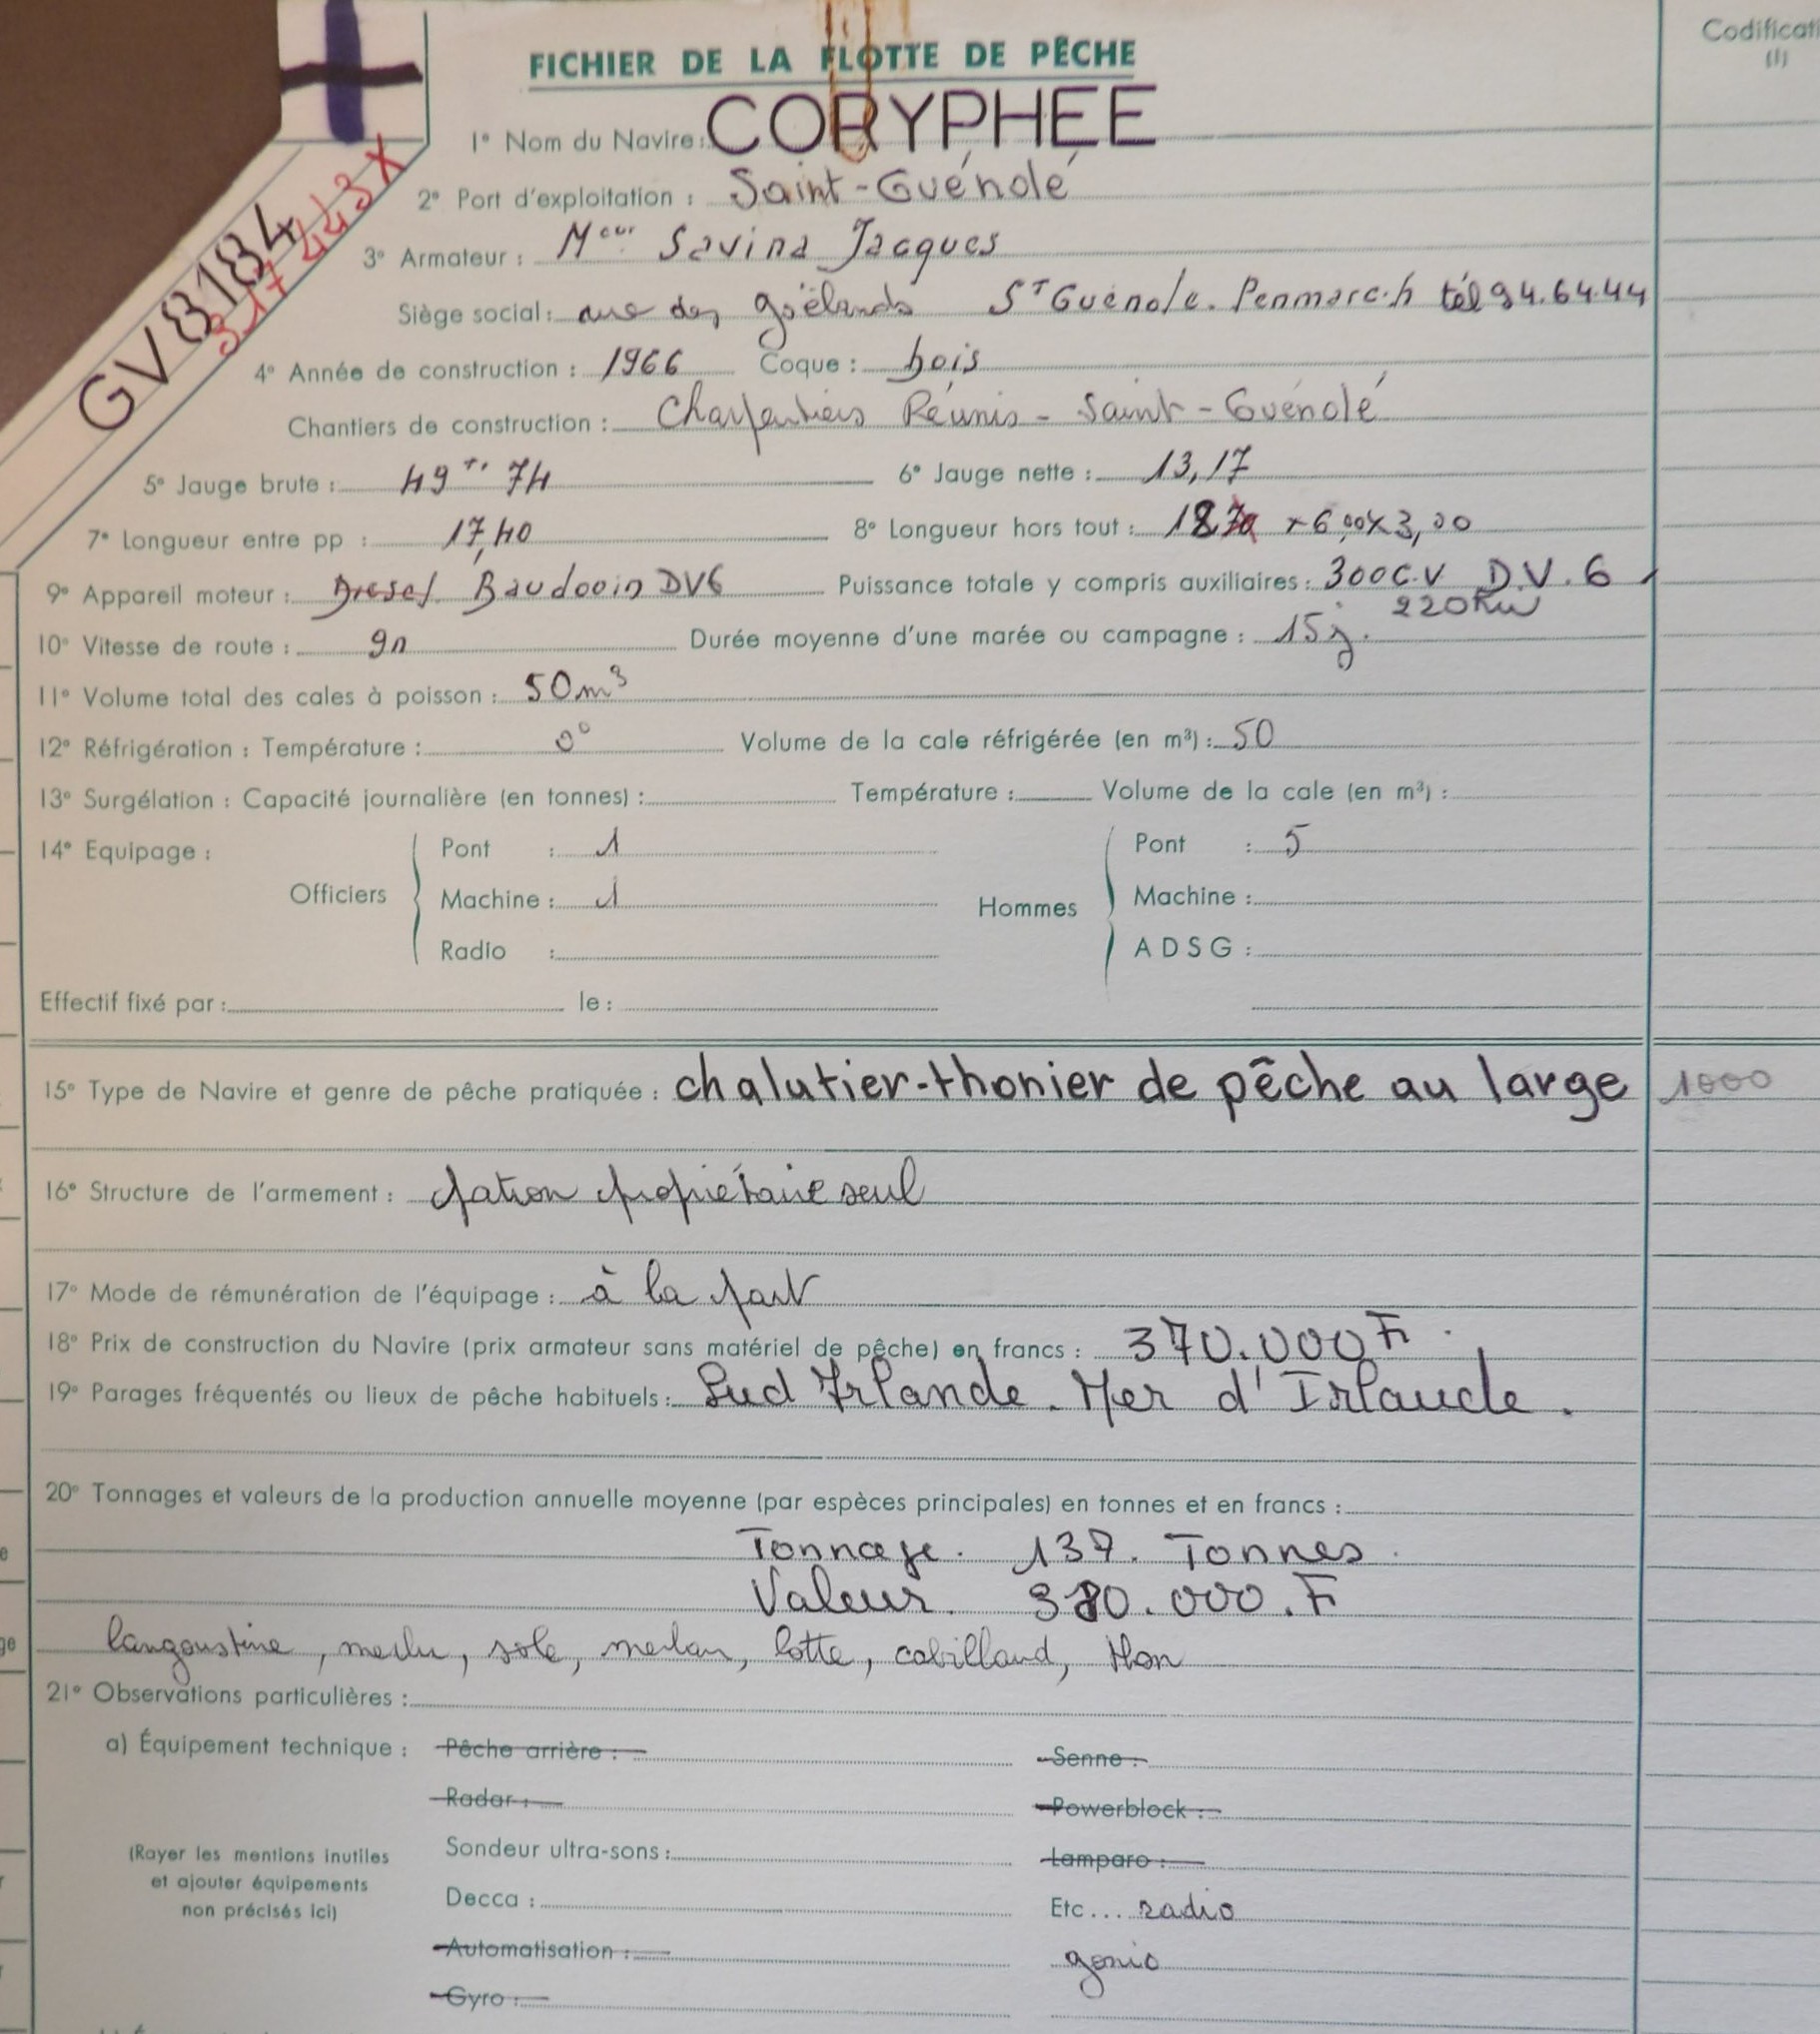 Codificati
(1)
FICHIER DE LA FLOTTE DE PÊCHE
GV 8184
317 443 X
1° Nom du Navire : CORYPHÉE
2° Port d'exploitation : Saint-Guénolé
3° Armateur : Meur Savina Jacques
Siège social : rue des goëlands ST Guénolé. Penmarc'h tél 94.64.44
4° Année de construction : 1966 Coque : bois
Chantiers de construction : Charpentiers Réunis - Saint-Guénolé
5° Jauge brute : 49 Tx 74 6° Jauge nette : 13,17
7° Longueur entre pp : 17,40 8° Longueur hors tout : 18 x 6,00 x 3,00
9° Appareil moteur : Diesel Baudouin DV6 Puissance totale y compris auxiliaires : 300 C.V D.V.6
220 Kw
10° Vitesse de route : 9n Durée moyenne d'une marée ou campagne : 15 j.
11° Volume total des cales à poisson : 50 m³
12° Réfrigération : Température : 0° Volume de la cale réfrigérée (en m³) : 50
13° Surgélation : Capacité journalière (en tonnes) : Température : Volume de la cale (en m³) :
14° Equipage : Pont : 1 Pont : 5
Officiers Machine : 1 Hommes Machine :
Radio : A D S G :
Effectif fixé par : le :
15° Type de Navire et genre de pêche pratiquée : chalutier-thonier de pêche au large 1000
16° Structure de l'armement : patron propriétaire seul
17° Mode de rémunération de l'équipage : à la part
18° Prix de construction du Navire (prix armateur sans matériel de pêche) en francs : 370.000 F
19° Parages fréquentés ou lieux de pêche habituels : Sud Irlande. Mer d'Irlande.
20° Tonnages et valeurs de la production annuelle moyenne (par espèces principales) en tonnes et en francs :
Tonnage. 137. Tonnes.
Valeur. 380.000.F
langoustine, merlu, sole, merlan, lotte, cabillaud, thon
21° Observations particulières :
a) Équipement technique : Pêche arrière : Senne :
Radar : Powerblock :
(Rayer les mentions inutiles
et ajouter équipements
non précisés ici)
Sondeur ultra-sons : Lamparo :
Decca : Etc... radio
Automatisation : gonio
Gyro :